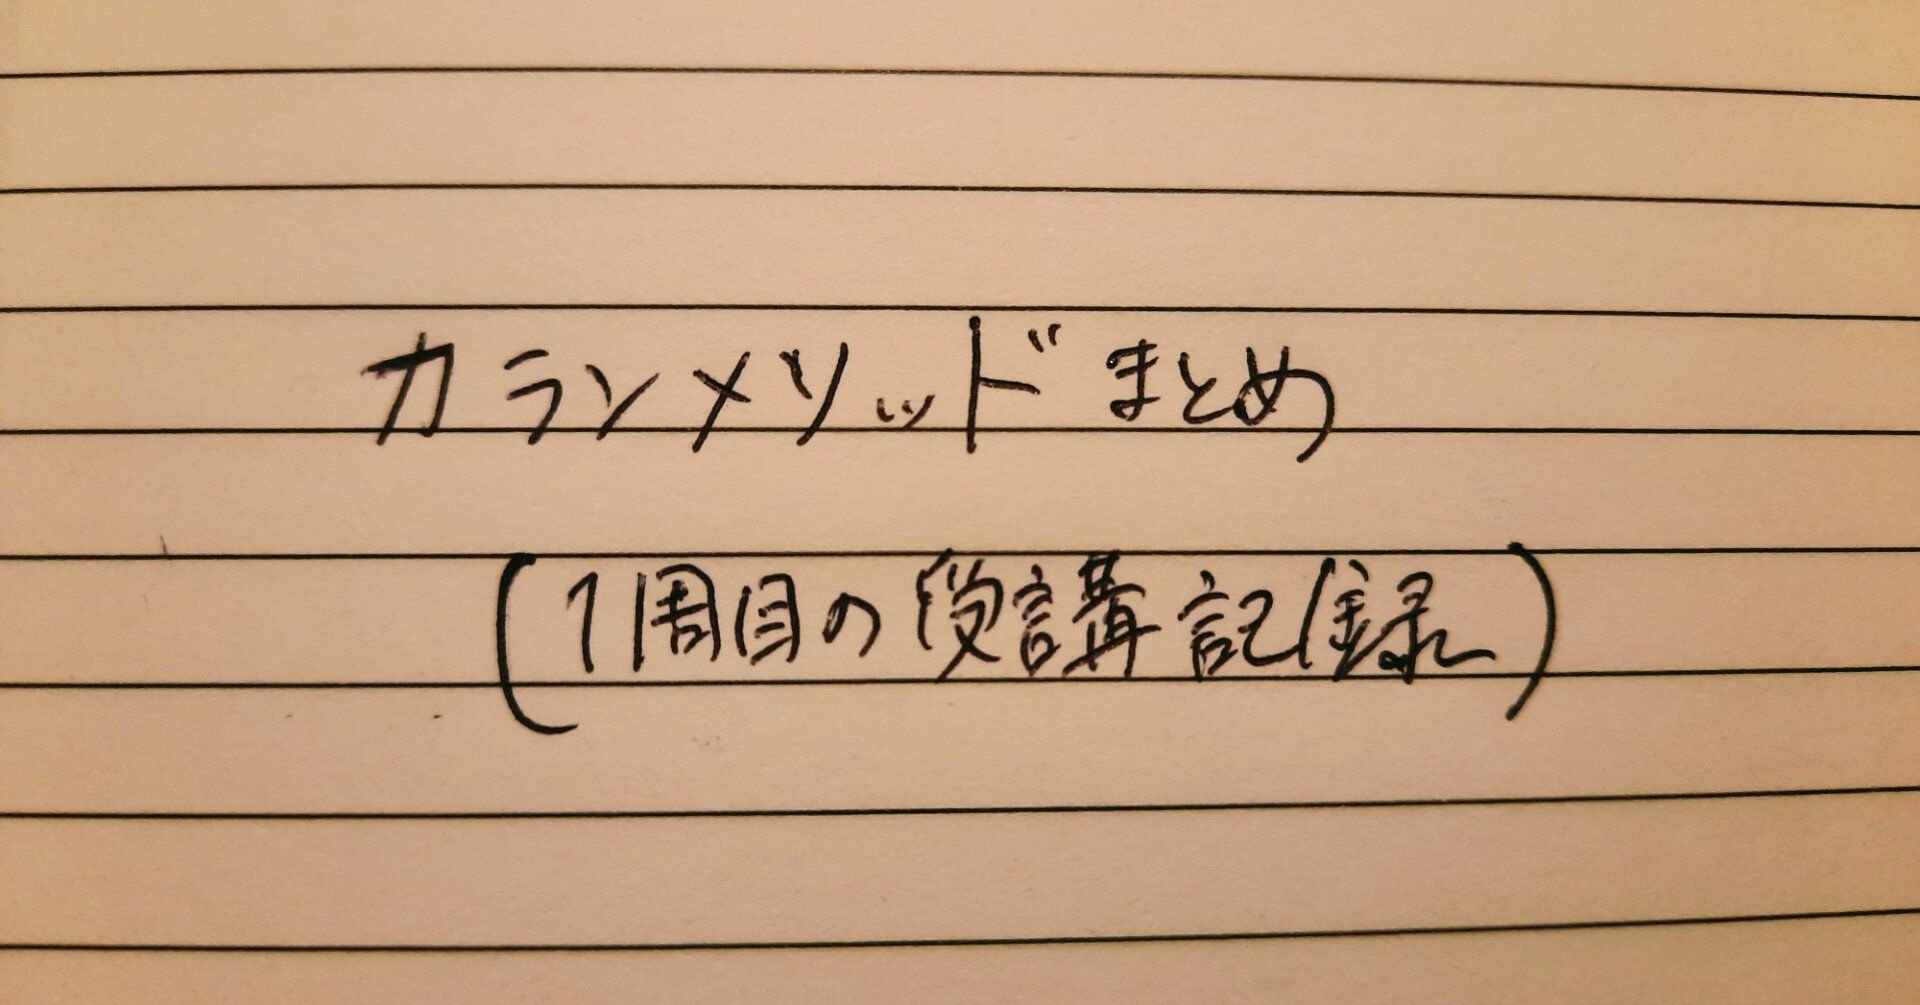 カランメソッドまとめ
(1周目の受講記録)